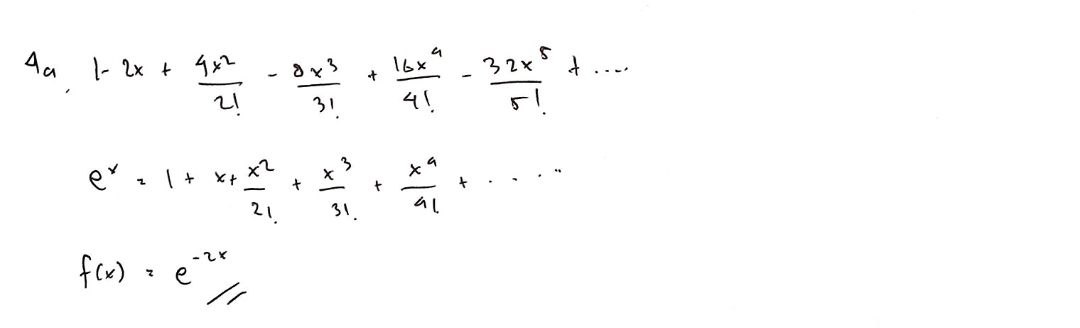 4a. 1 - 2x + 4x²/2! - 8x³/3! + 16x⁴/4! - 32x⁵/5! + ....
eˣ = 1 + x + x²/2! + x³/3! + x⁴/4! + .....
f(x) = e⁻²ˣ